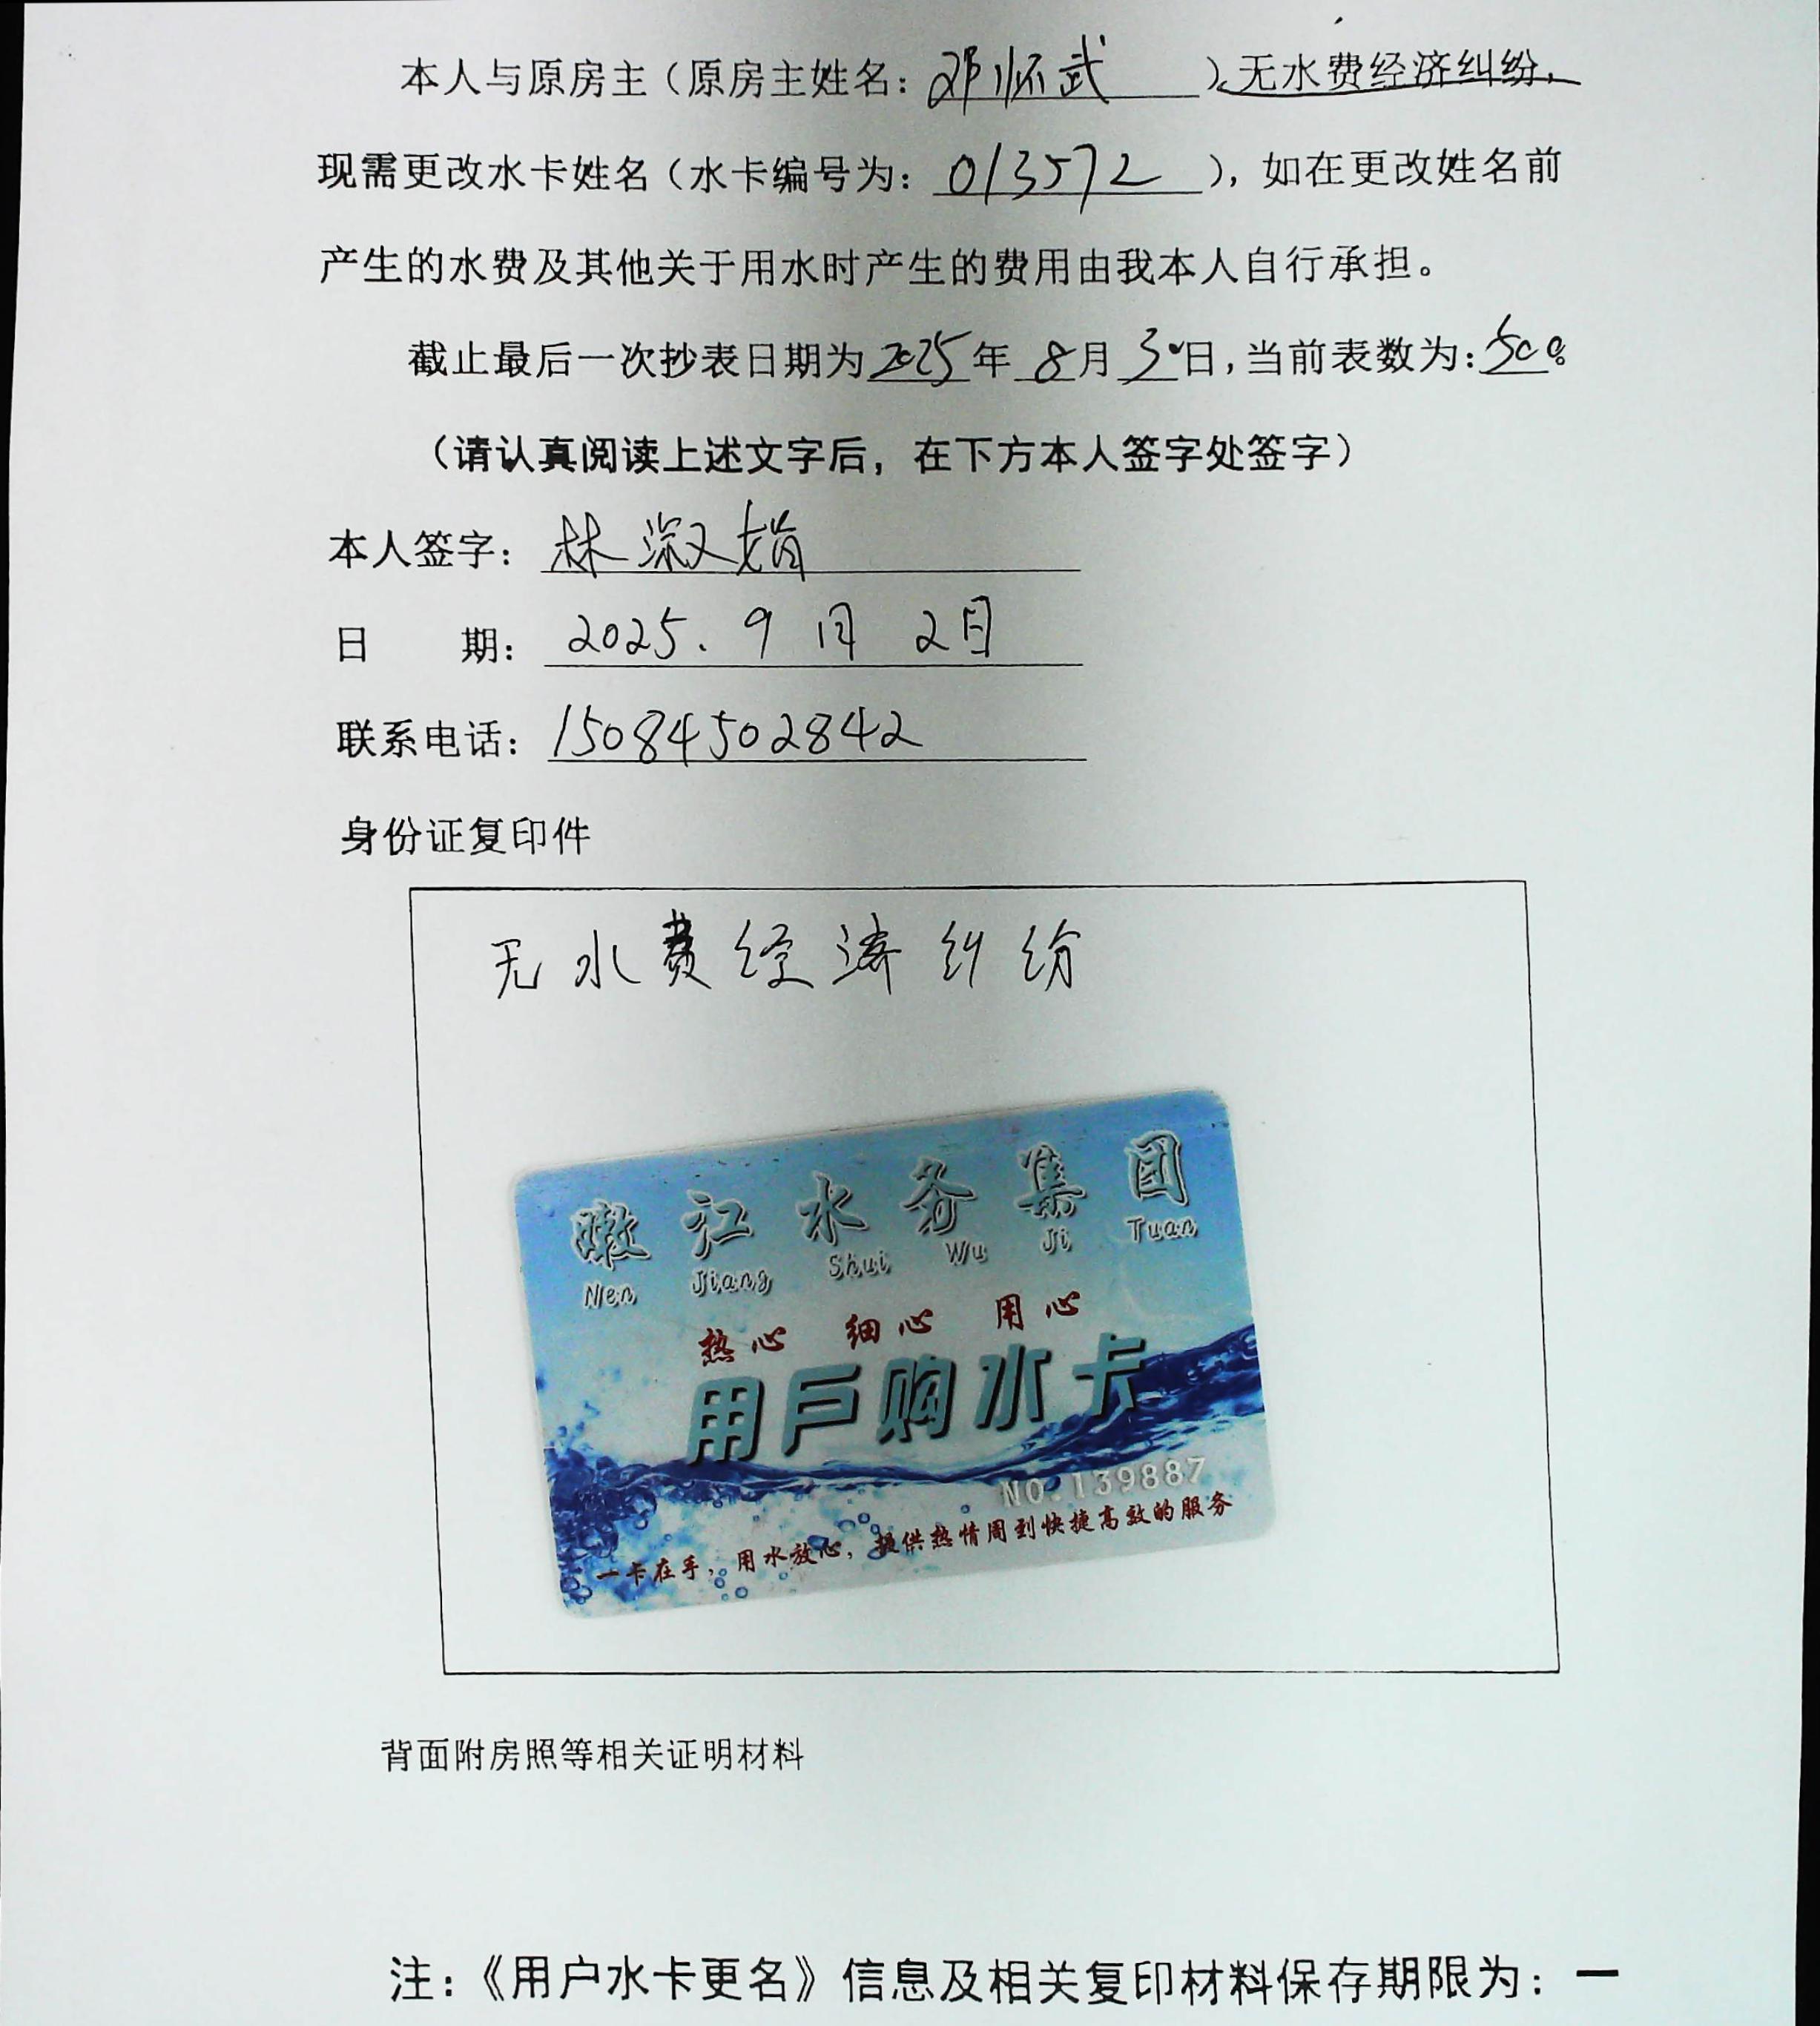 本人与原房主（原房主姓名：邓怀武），无水费经济纠纷，
现需更改水卡姓名（水卡编号为：013572），如在更改姓名前
产生的水费及其他关于用水时产生的费用由我本人自行承担。
截止最后一次抄表日期为2025年8月30日，当前表数为：500。
（请认真阅读上述文字后，在下方本人签字处签字）
本人签字：林淑娟
日 期：2025.9月2日
联系电话：15084502842
身份证复印件
无水费经济纠纷
嫩江水务集团
Nen Jiang Shui Wu Ji Tuan
热心 细心 用心
用户购水卡
NO.139887
一卡在手，用水放心，提供热情周到快捷高效的服务
背面附房照等相关证明材料
注：《用户水卡更名》信息及相关复印材料保存期限为：一